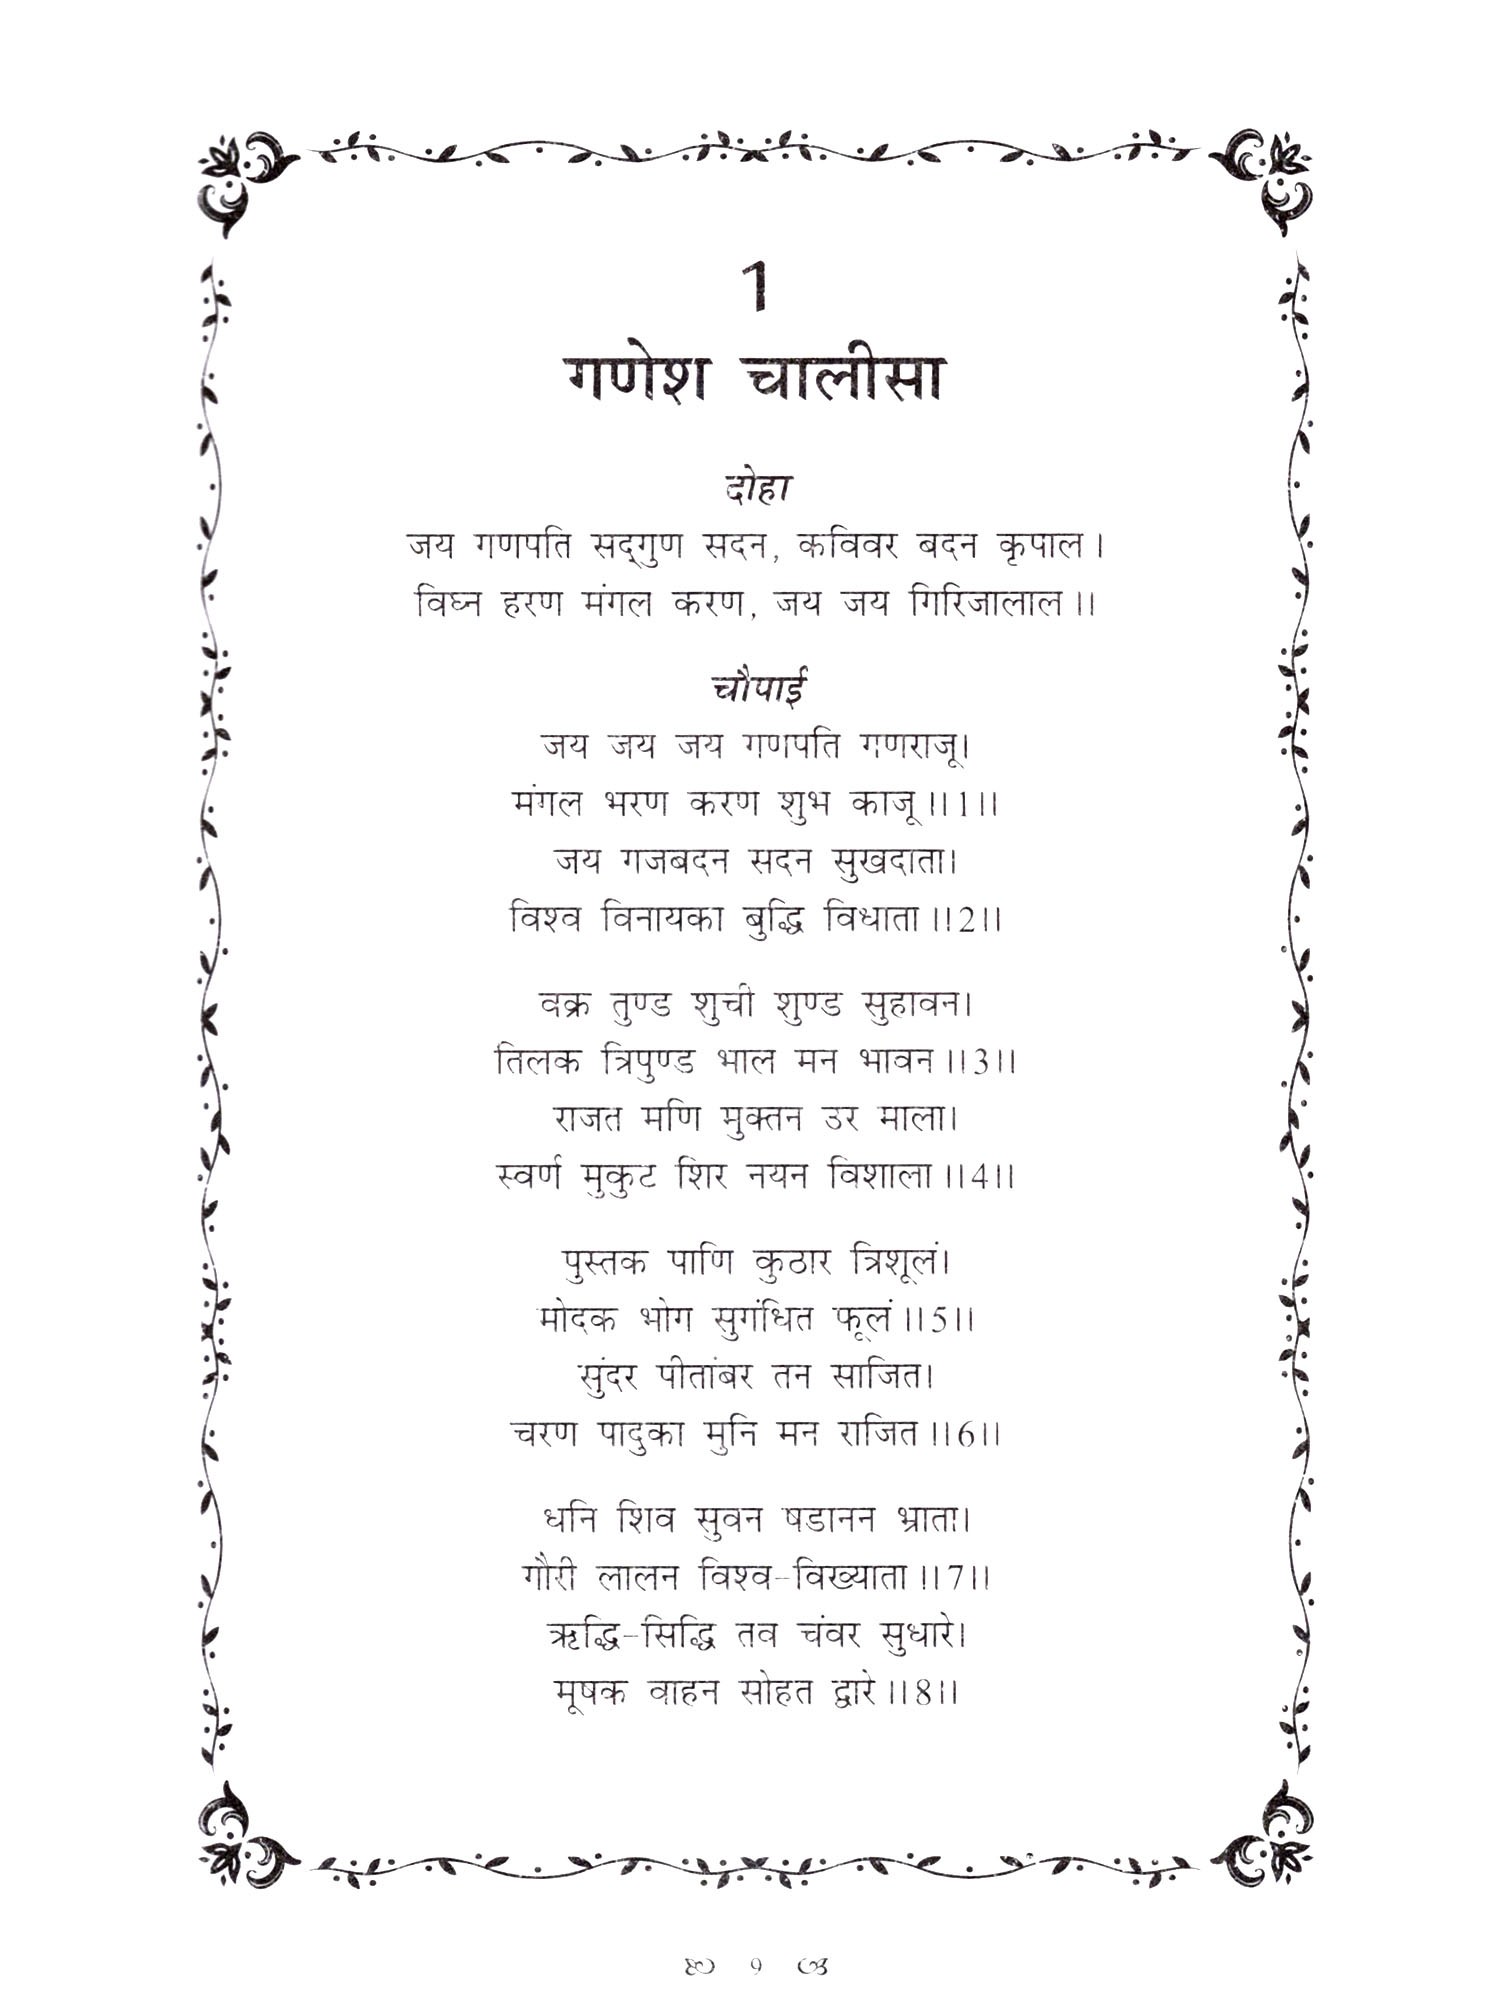 1
गणेश चालीसा
दोहा
जय गणपति सद्‌गुण सदन, कविवर बदन कृपाल।
विघ्न हरण मंगल करण, जय जय गिरिजालाल।।
चौपाई
जय जय जय गणपति गणराजू।
मंगल भरण करण शुभ काजू।।1।।
जय गजबदन सदन सुखदाता।
विश्व विनायका बुद्धि विधाता।।2।।
वक्र तुण्ड शुची शुण्ड सुहावन।
तिलक त्रिपुण्ड भाल मन भावन।।3।।
राजत मणि मुक्तन उर माला।
स्वर्ण मुकुट शिर नयन विशाला।।4।।
पुस्तक पाणि कुठार त्रिशूलं।
मोदक भोग सुगंधित फूलं।।5।।
सुंदर पीतांबर तन साजित।
चरण पादुका मुनि मन राजित।।6।।
धनि शिव सुवन षडानन भ्राता।
गौरी लालन विश्व-विख्याता।।7।।
ऋद्धि-सिद्धि तव चंवर सुधारे।
मूषक वाहन सोहत द्वारे।।8।।
9